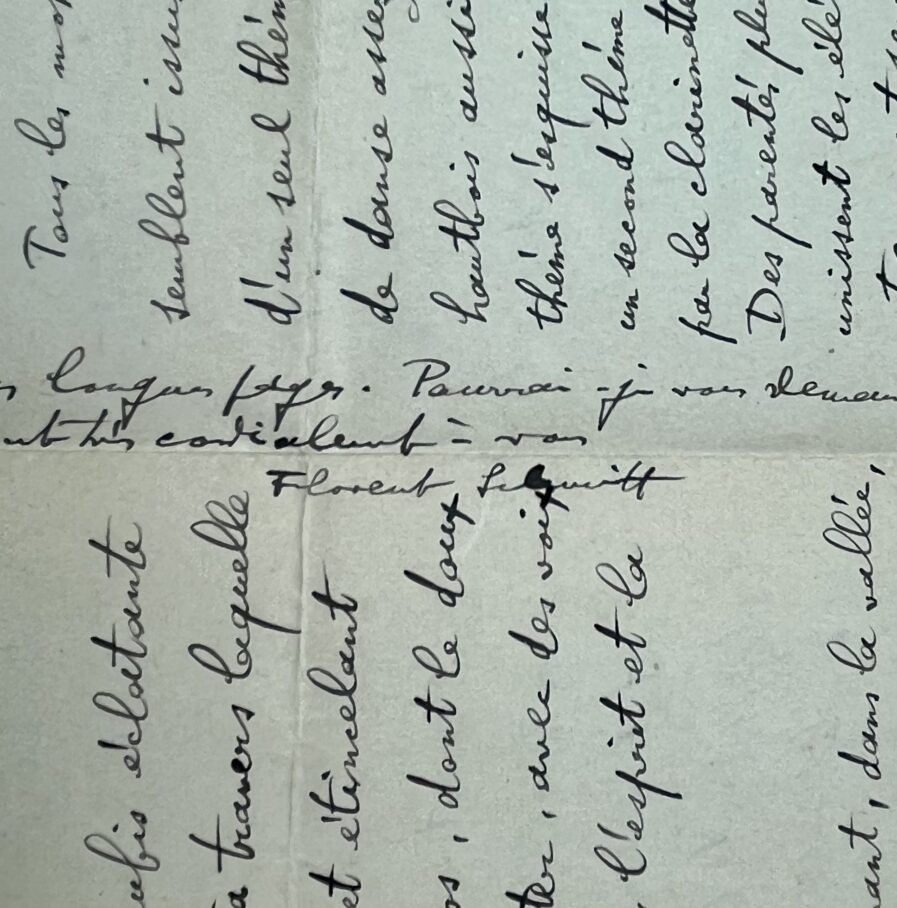 Tous les mo
semblent issu
d'un seul thèm
de danse asse
hautbois aussi
thème s'esquisse
un second thème
par la clarinette
Des parentés plu
unissent les élé
s longues pages. Pourrai-je vous deman
nt très cordialement à vous
Florent Schmitt
ubis éclatante
à travers laquelle
et étincelant
os, dont le doux
ter, avec des voix
l'esprit et la
ant, dans la vallée,